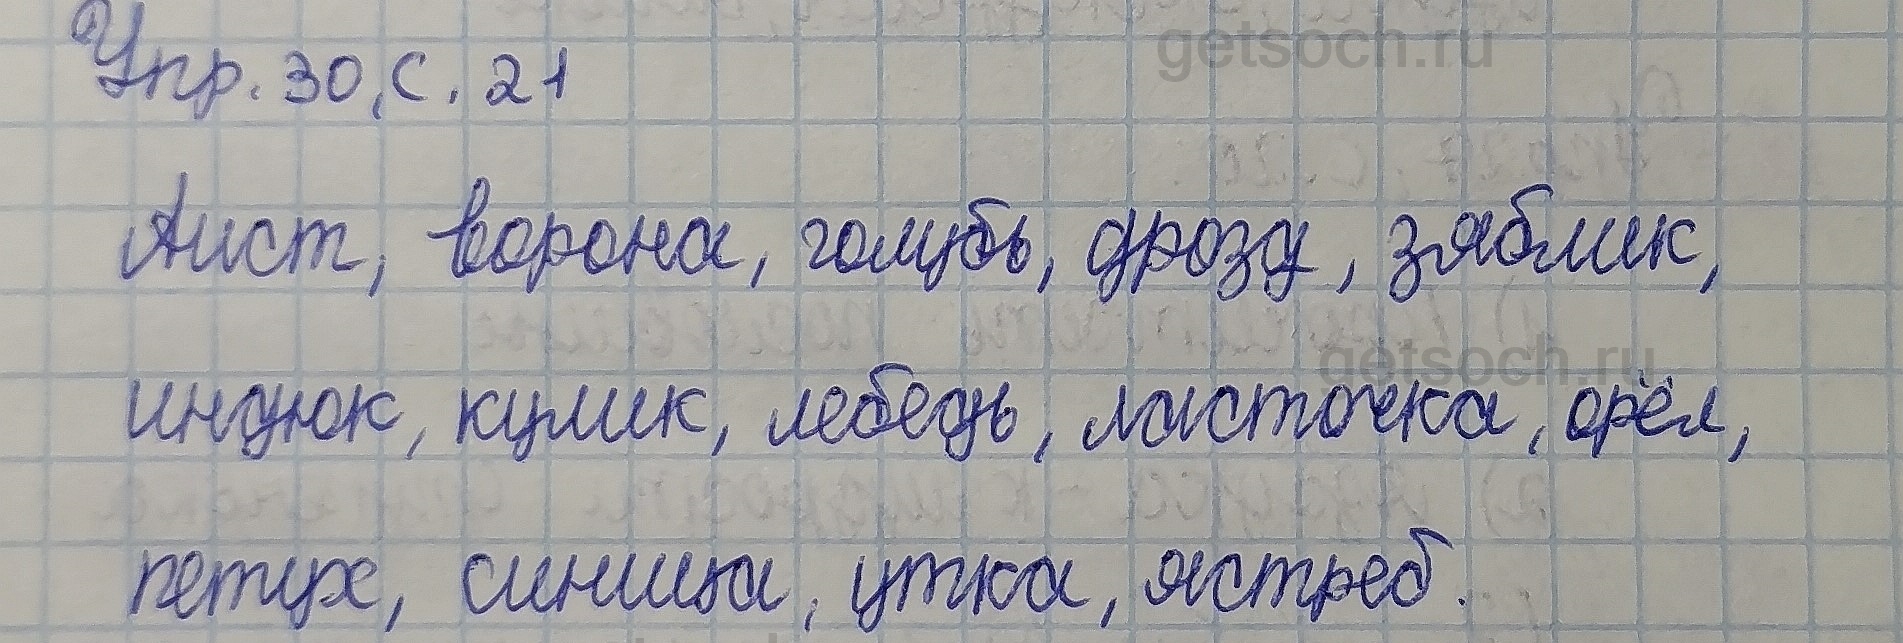 getsoch.ru
Упр. 30, с. 21
Аист, ворона, голубь, дрозд, зяблик,
getsoch.ru
индюк, кулик, лебедь, ласточка, орёл,
петух, синица, утка, ястреб.